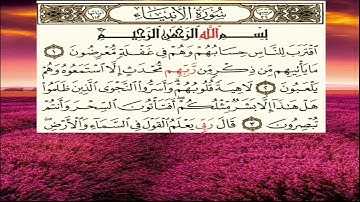 سُورَةُ الأَنبِيَاءِ
بِسْمِ اللَّهِ الرَّحْمَٰنِ الرَّحِيمِ
ٱقْتَرَبَ لِلنَّاسِ حِسَابُهُمْ وَهُمْ فِى غَفْلَةٍ مُّعْرِضُونَ ١
مَا يَأْتِيهِم مِّن ذِكْرٍ مِّن رَّبِّهِم مُّحْدَثٍ إِلَّا ٱسْتَمَعُوهُ وَهُمْ
يَلْعَبُونَ ٢ لَاهِيَةً قُلُوبُهُمْ وَأَسَرُّوا۟ ٱلنَّجْوَى ٱلَّذِينَ ظَلَمُوا۟
هَلْ هَٰذَآ إِلَّا بَشَرٌ مِّثْلُكُمْ أَفَتَأْتُونَ ٱلسِّحْرَ وَأَنتُمْ
تُبْصِرُونَ ٣ قَالَ رَبِّى يَعْلَمُ ٱلْقَوْلَ فِى ٱلسَّمَآءِ وَٱلْأَرْضِ